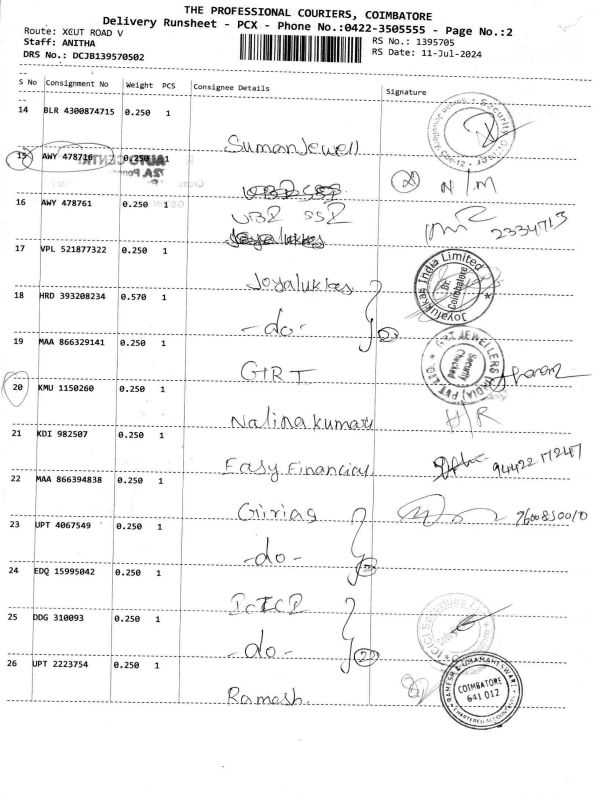 THE PROFESSIONAL COURIERS, COIMBATORE
Delivery Runsheet - PCX - Phone No.:0422-3505555 - Page No.:2
Route: XCUT ROAD V
RS No.: 1395705
Staff: ANITHA
RS Date: 11-Jul-2024
DRS No.: DCJB139570502
S No Consignment No Weight PCS Consignee Details Signature
14 BLR 4300874715 0.250 1
Suman Jewell
15 AWY 478716 0.250 1
N/M
16 AWY 478761 0.250 1
UBI SSI
2334713
17 VPL 521877322 0.250 1
Joyalukkas
Joyalukkas India Limited
Br. Coimbatore
18 HRD 393208234 0.570 1
-do-
19 MAA 866329141 0.250 1
GRT
GRT JEWELLERS (INDIA) PVT LTD
Security Checked
20 KMU 1150260 0.250 1
Nalina kumari
H/R
21 KDI 982507 0.250 1
Easy Financial
94422 17247
22 MAA 866394838 0.250 1
Girias
9600850010
23 UPT 4067549 0.250 1
-do-
24 EDQ 15995042 0.250 1
ICICI
25 DDG 310093 0.250 1
-do-
22
26 UPT 2223754 0.250 1
Ramesh.
RAMESH & UMAMAHESWARI
COIMBATORE
641 012
CHARTERED ACCOUNTANTS